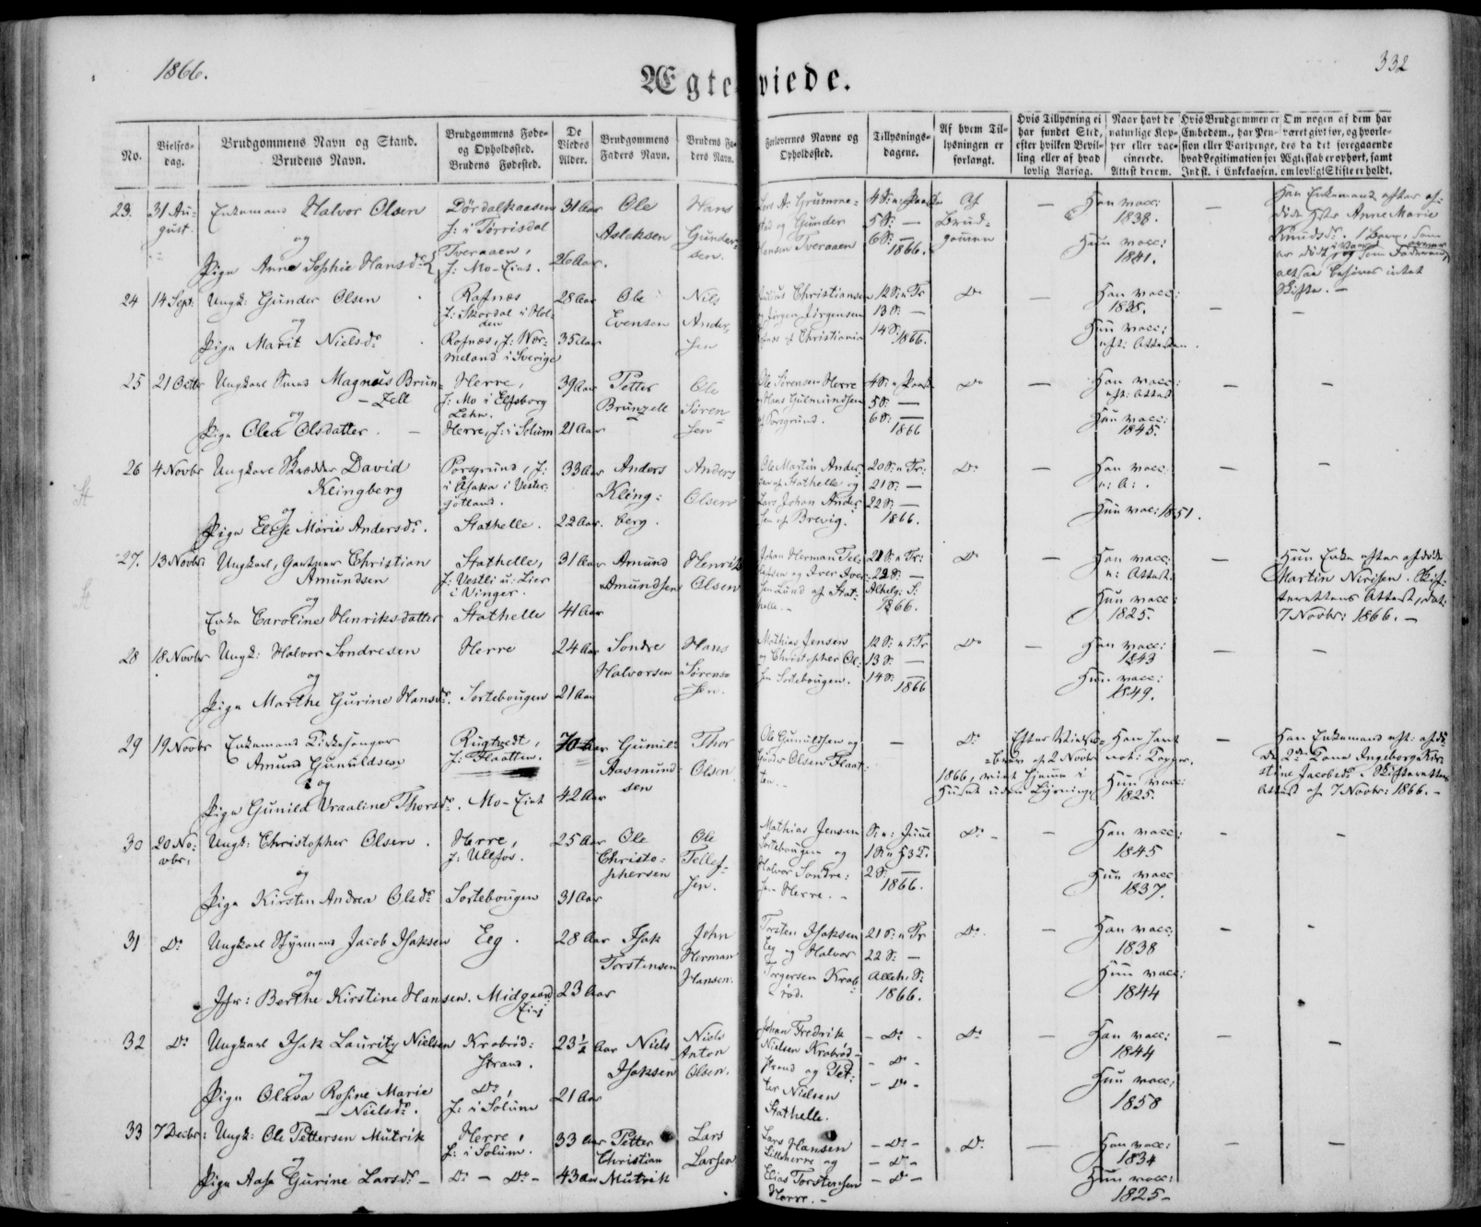 1866.
Ægteviede.
332
No.
Vielses-
dag.
Brudgommens Navn og Stand.
Brudens Navn.
Brudgommens Føde-
og Opholdssted.
Brudens Fødested.
De
Viedes
Alder.
Brudgommens
Faders Navn.
Brudens Fa-
ders Navn.
Forlovernes Navne og
Opholdssted.
Tillysnings-
dagene.
Af hvem Til-
lysningen er
forlangt.
Hvis Tillysning ei
har fundet Sted,
efter hvilken Bevil-
ling eller af hvad
lovlig Aarsag.
Naar havt de
naturlige Kop-
per eller vac-
cinerede.
Attest derom.
Hvis Brudgommen er
Embedsm., har Pen-
sion eller Vartpenge,
hvad Legitimation for
Indsk. i Enkekassen.
Om nogen af dem har
været givt før, og hvorle-
des da det foregaaende
Ægteskab er ophørt, samt
om lovligt Skifte er holdt.
23. 31 Au-
gust.
Enkemand Halvor Olsen
og
Pige Anne Sophie Hansdr.
Dørdalkaasen
f: i Tørrisdal
Tveraaen,
f: Mo-Eiet.
31 Aar
26 Aar.
Ole
Aslaksen
Hans
Gunder-
sen.
og Gunder
Hansen Tveraaen
5 S: —
6 S: —
1866.
Af
Brud-
gommen
—
Han vacc:
1838.
Hun vacc:
1841.
—
Han Enkemand efter af-
døde Anne Marie
Knudsdr.
altsaa behøves intet
Skifte. —
24 14 Sept: Ungk: Gunder Olsen
og
Pige Marit Nielsdr.
Rafnæs
Rafnæs, f: Vor-
meland i Sverige
28 Aar
35 Aar
Ole
Evensen
Nils
Ander-
sen
Christiansen
Jørgen Jørgensen
Christiania
12 S: n Tr
13 S: —
14 S:
1866.
Do
—
Han vacc:
1838.
Hun vacc:
eft: Attesten.
—
—
25 21 Octbr Ungkarl Smed Magnus Brun-
zell
og
Pige Olea Olsdatter.
Herre,
f: Mo i Elfsborg
Lehn.
Herre, f: i Solum
39 Aar
21 Aar
Petter
Brunzell
Ole
Sören-
sen
Ole Sørensen Herre
Porsgrund.
5 S: —
6 S: —
1866
Do
—
Han vacc:
eft: Attest
Hun vacc:
1845.
—
—
26 4 Novbr Ungkarl Skrædder David
Klingberg
og
Pige Else Marie Andersdr.
Porsgrund, f:
i Asaka i Vester-
gotland.
Stathelle.
33 Aar
22 Aar.
Anders
Kling-
berg.
Anders
Olsen
Ole Martin Ander-
sen af Stathelle og
Lars Johan Ander-
sen af Brevig.
20 S: n Tr:
21 S: —
22 S: —
1866.
Do
—
Han vacc:
n: A:.
Hun vac: 1851.
—
—
27. 13 Novbr: Ungkarl, Gartner Christian
Amundsen
og
Enke Caroline Henriksdatter
Stathelle,
i Vinger.
Stathelle
31 Aar
41 Aar
Amund
Amundsen
Henrik
Olsen
Johan Herman
Lund af Stat-
helle. —
21 S: n Tr:
22 S: —
Alhelg: S:
1866.
Do
—
Han vacc:
n: Attest.
Hun vacc:
1825.
—
Hun Enke efter afdøde
Martin Nirisen. Skif-
terettens Attest, dat:
7 Novbr: 1866. —
28 18 Novbr Ungk: Halvor Sondresen
og
Pige Marthe Gurine Hansdr.
Herre
Sortebougen
24 Aar
21 Aar
Sondre
Halvorsen
Hans
Sørens-
sen.
Mathias Jensen
og Christopher Ol-
sen Sortebougen.
12 S: n Tr
13 S: —
14 S: —
1866
Do
—
Han vacc:
1843
Hun vacc:
1849.
—
—
29 19 Novbr Enkemand Kirkesanger
Amund Gunuldsen
og
Pige Gunild Vraaline Thorsdr.
Rugtvedt,
f: Flaatten.
Mo-Eiet
70 Aar
42 Aar
Gunuld
Aasmund-
sen
Thor
Olsen.
Ole Gunuldsen og
Gunder Olsen Flaat-
ten. —
—
Do
brev af 2 Novbr
1866, viet hjemme i
Huset uden Lysning.
Han havt
nat: Kopper.
Hun vacc:
1825.
Han Enkemand eft: afdø-
de 2den Kone Ingeborg Kir-
stine Jacobsdr. Skifterettens
Attest af 7 Novbr: 1866. —
30 20 No-
vbr:
Ungk: Christopher Olsen.
og
Pige Kirsten Andrea Olsdr.
Herre,
f: Ulefos.
Sortebougen
25 Aar
31 Aar
Ole
Christo-
phersen
Ole
Tellef-
sen.
Mathias Jensen
Sortebougen og
Halvor Sondre-
sen Herre. —
2 S: —
1866.
Do
—
Han vacc:
1845
Hun vacc
1837.
—
—
31 Do Ungkarl Styrmand Jacob Isaksen
og
Jfr: Berthe Kirstine Hansen.
Eeg.
Midgaard
Eiet
28 Aar
23 Aar
Isak
Torstensen
John
Herman
Hansen.
Torsten Isaksen
Eeg og Halvor
Torgersen Krab-
rød.
21 S: n Tr
22 S: —
1866.
Do
—
Han vacc:
1838
Hun vacc:
1844
—
—
32 Do Ungkarl Isak Lauritz Nielsen
og
Pige Olava Rosine Marie
Nielsdr.
Krabrød-
strand.
Do,
f: i Solum
23½ Aar
21 Aar
Niels
Isaksen
Niels
Anton
Olsen.
Johan Fredrik
Nielsen Krabrød-
strand og Pet-
ter Nielsen
Stathelle.
— Do —
— Do —
— Do —
Do
—
Han vacc:
1844
Hun vacc:
1858
—
—
33 7 Decbr: Ungk: Ole Pettersen Mutrik
og
Pige Aase Gurine Larsdr —
Herre,
f: i Solum.
Do — Do —
33 Aar
43 Aar
Petter
Christian
Mutrik
Lars
Larsen
Lars Hansen
Lilleherre og
Elias Torstensen
Herre. —
— Do —
— Do —
— Do —
Do
—
Han vacc:
1834
Hun vacc:
1825 —
—
—